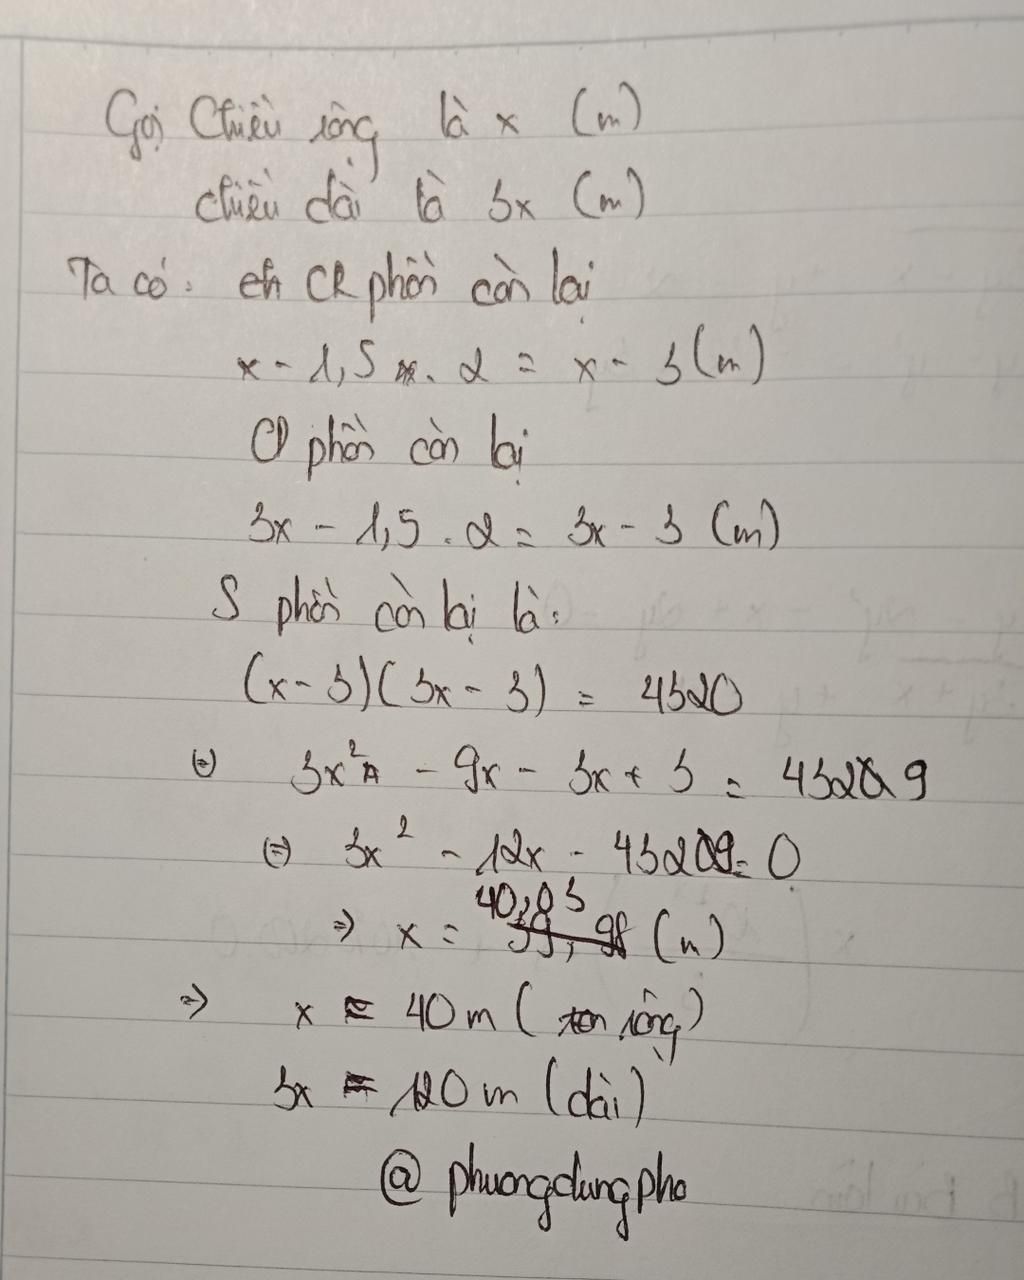 Gọi Chiều rộng là x (m)
chiều dài là 3x (m)
Ta có: CR phần còn lại
x - 1,5 . 2 = x - 3 (m)
CD phần còn lại
3x - 1,5 . 2 = 3x - 3 (m)
S phần còn lại là:
(x - 3)(3x - 3) = 4320
(=) 3x² - 9x - 3x + 3 = 4320 9
(=) 3x² - 12x - 4320 9 = 0
40,03
=> x = 39,98 (m)
=> x = 40m (rộng)
3x = 120m (dài)
@phuongdungpho